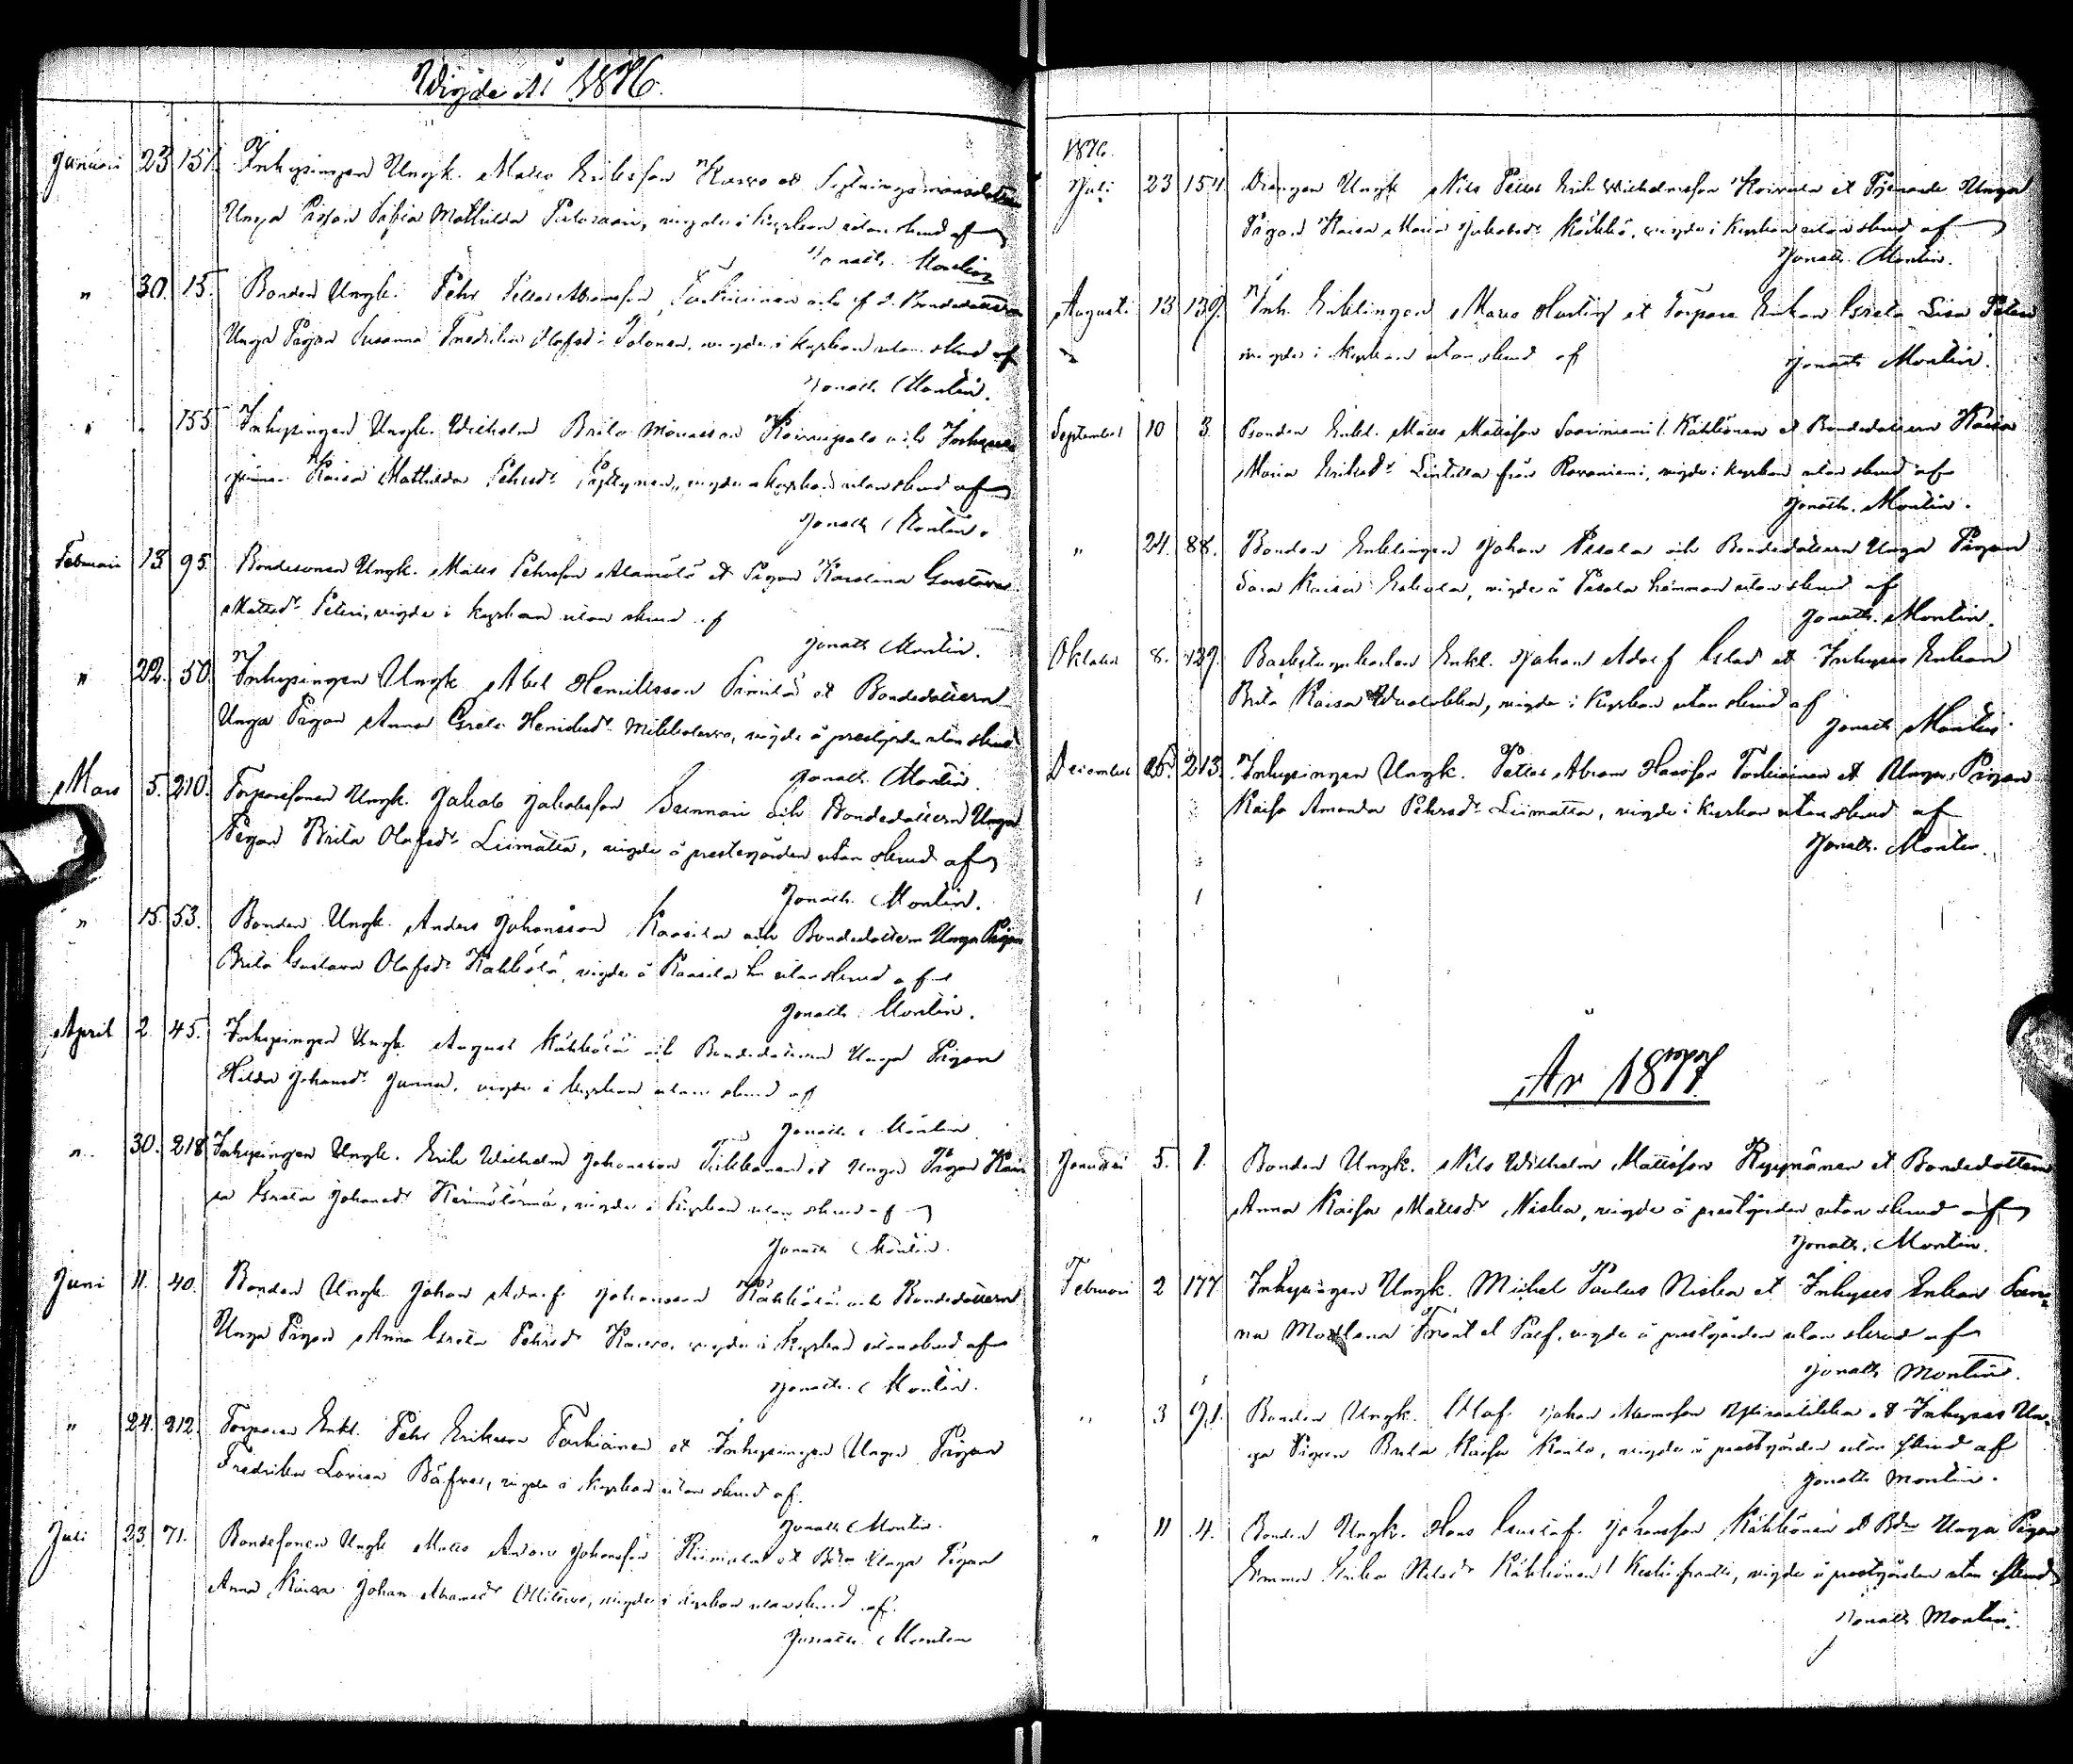 Wigde År 1876.
Januari 23 151. Inhysingen Ungk. Matts Eriksson Karvo et
Unga Pigan Sofia Mathilda, wigde i kyrkan utan skrud af
Jonath. Montin
" 30. 15. Bonden Ungk. Pehr Petter Abramsson och f. d. Bondedottren
Unga Pigan Susanna Fredrika Olofsd:r Tolonen, wigde i kyrkan utan skrud af
Jonath. Montin.
" " 155 Inhysingen Ungk. Wilhelm Brito Monasson Koivupalo och Inhyses
pigan Kaisa Mathilda Pehrsd:r, wigde i kyrkan utan skrud af
Jonath Montin.
Februari 13 95. Bondesonen Ungk. Matts Pehrsson Alamölö et Pigan Karolina Gustava
Mattsd:r Peteri, wigde i kyrkan utan skrud af
Jonath Montin.
" 22. 50 Inhysingen Ungk. Abel Henriksson et Bondedottern
Unga Pigan Anna Greta Henriksd:r, wigde å prestgården utan skrud
Jonath. Montin.
Mars 5. 210. Torparesonen Ungk. Jakob Jakobsson och Bondedottern Unga
Pigan Brita Olofsd:r Liimatta, wigde å prestegården utan skrud af
Jonath. Montin.
" 15. 53. Bonden Ungk. Anders Johansson Kaasila och Bondedottern Unga Pigan
Brita Gustava Olofsd:r Kakkölä, wigde å Kaasila hn utan skrud af
Jonath. Montin.
April 2 45. Inhysingen Ungk. August Käkkölä och Bondedottern Unga Pigan
Hilda Johansd:r Junna, wigde i kyrkan utan skrud af
Jonath. Montin
" 30. 218 Inhysingen Ungk. Erik Wilhelm Johansson et Unga Pigan Kai
sa Greta Johansd:r, wigde i kyrkan utan skrud af
Jonath Montin.
Juni 11. 40. Bonden Ungk. Johan Adolf Johansson Käkkölä och Bondedottern
Unga Pigan Anna Greta Pehrsd:r Karvo, wigde i kyrkan utan skrud af
Jonath. Montin.
" 24. 212. Torparen Enkl. Pehr Eriksson Tarkiainen et Inhysingen Unga Pigan
Fredrika Lovisa Bäfver, wigde i kyrkan utan skrud af.
Jonath. Montin.
Juli 23. 71. Bondesonen Ungk. Matts Anders Johansson et Bdn Unga Pigan
Anna Kaisa Johan Abramsd:r, wigde i kyrkan utan skrud af.
Jonath. Montin
1876.
Juli 23 154 Drengen Ungk. Nils Petter Erik Wilhelmsson Koivula et Tjenande Unga
Pigan Kaisa Maria Jakobsd:r, wigde i kyrkan utan skrud af
Jonath. Montin.
Augusti 13 139. Inh. Enklingen Marus et Torpare Enkan Greta Lisa Peteri
wigde i kyrkan utan skrud af Jonath Montin.
September 10 3 Bonden Enkl. Matts Mattsson Saariniemi l. Käkkönen et Bondedottern Kaisa
Maria Eriksd:r från Rovaniemi, wigde i kyrkan utan skrud af
Jonath. Montin.
" 24. 88. Bonden Enklingen Johan Pesola och Bondedottern Unga Pigan
Sara Kaisa, wigde å Pesola hemman utan skrud af
Jonath. Montin.
Oktober 8. 129. Backstugukarlen Enkl. Johan Adolf et Inhyses Enkan
Brita Kaisa, wigde i kyrkan utan skrud af
Jonath Montin.
December 26. 213. Inhysingen Ungk. Petter Abram Tarkiainen et Unga Pigan
Kaisa Amanda Pehrsd:r Liimatta, wigde i kyrkan utan skrud af
Jonath. Montin.
År 1877.
Januari 5. 1. Bonden Ungk. Nils Wilhelm Mattsson Kyynänen et Bondedottern
Anna Kaisa Mattsd:r Niska, wigde å prestgården utan skrud af
Jonath. Montin.
Februari 2 177 Inhysingen Ungk. Michel Paulus Niska et Inhyses Enkan San
na Madlena, wigde å prestgården utan skrud af
Jonath Montin.
" 3 91. Bonden Ungk. Olof Johan Abramsson et Inhyses Un
ga Pigan Brita Kaisa, wigde å prestgården utan skrud af
Jonath Montin.
" 11 4. Bonden Ungk. Hans Gustaf Johansson Käkkönen et Bdn Unga Pigan
Emma Erika Nilsd:r Käkkönen, wigde å prestgården utan skrud
Jonath Montin.